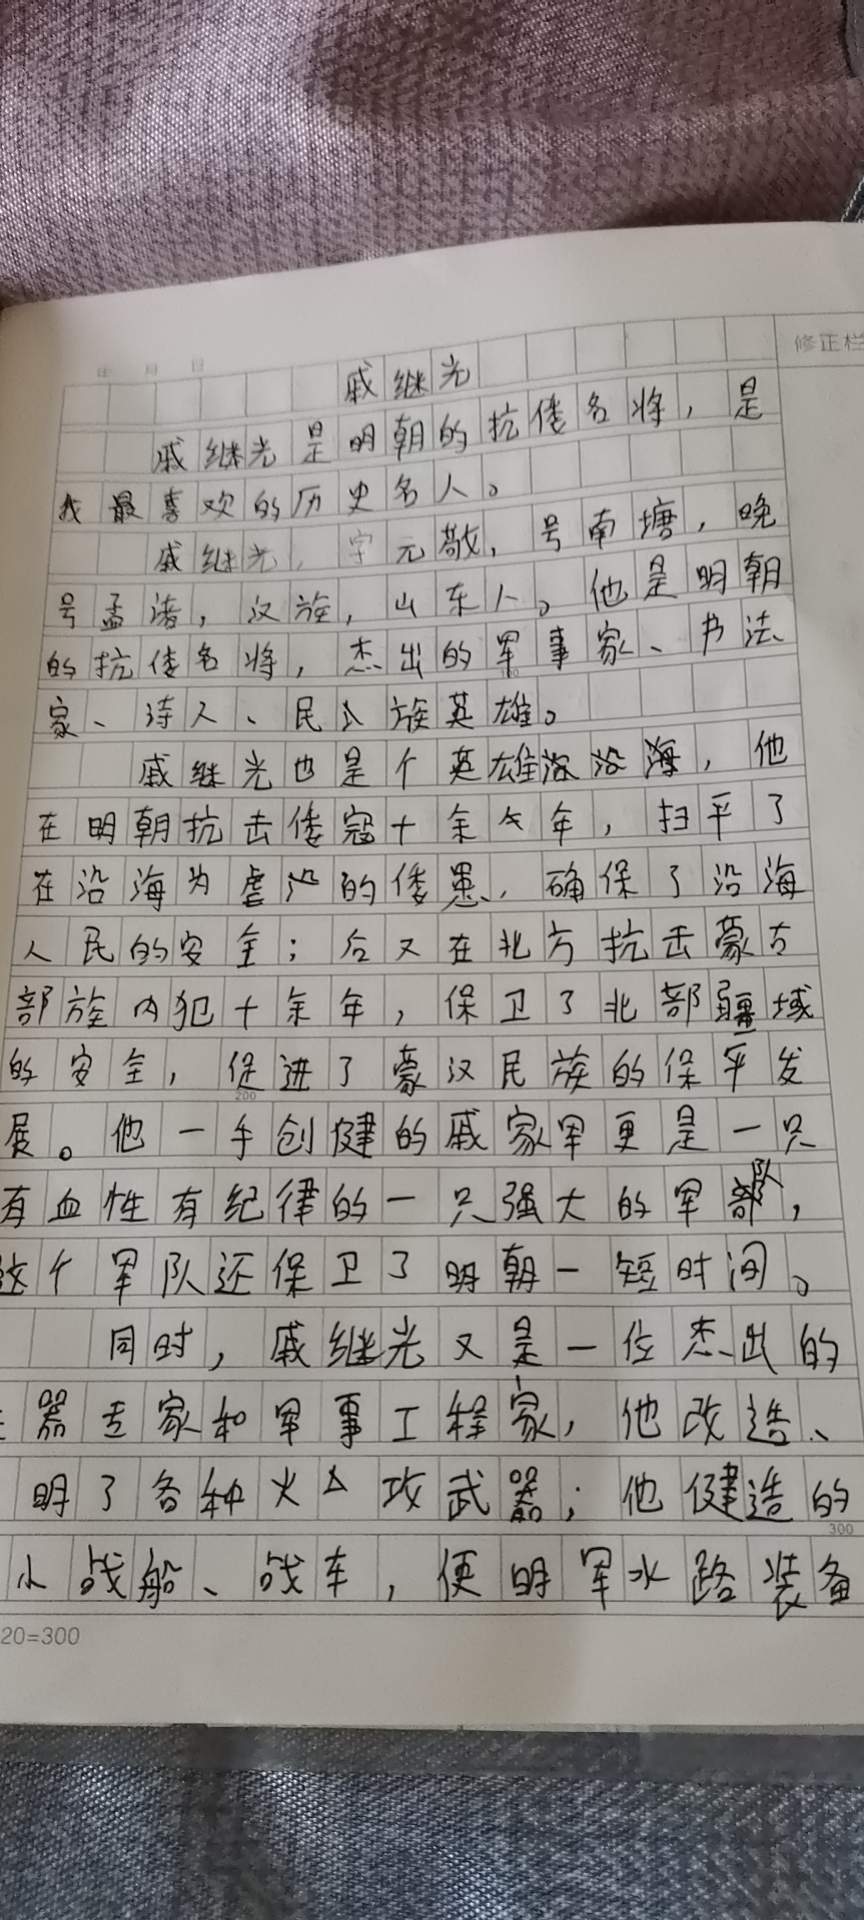 年 月 日
修正栏
戚继光
戚继光是明朝的抗倭名将，是
我最喜欢的历史名人。
戚继光，字元敬，号南塘，晚
号孟诸，汉族，山东人。他是明朝
的抗倭名将，杰出的军事家、书法
家、诗人、民族英雄。
戚继光也是个英雄沿海，他
在明朝抗击倭寇十余年，扫平了
在沿海为虐的倭患，确保了沿海
人民的安全；后又在北方抗击蒙古
部族内犯十余年，保卫了北部疆域
的安全，促进了蒙汉民族的保平发
200
展。他一手创健的戚家军更是一只
有血性有纪律的一只强大的军部队，
这个军队还保卫了明朝一短时间。
同时，戚继光又是一位杰出的
器专家和军事工程家，他改造、
明了各种火攻武器；他健造的
300
小战船、战车，使明军水路装备
20=300